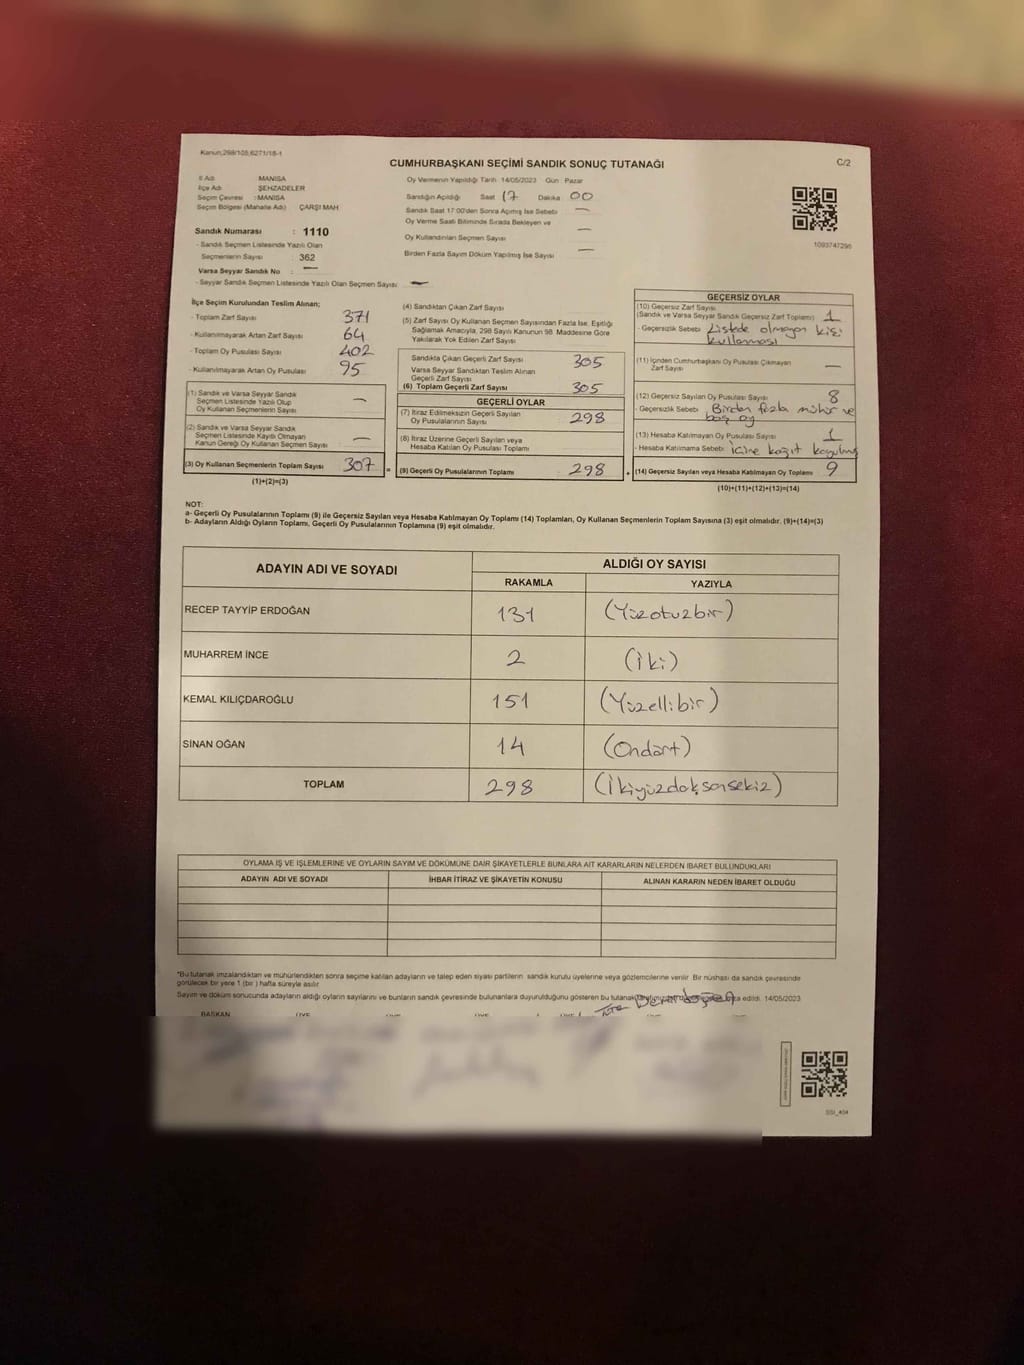 Kanun;298/105,6271/18-1
CUMHURBAŞKANI SEÇİMİ SANDIK SONUÇ TUTANAĞI
C/2
İl Adı : MANİSA
İlçe Adı : ŞEHZADELER
Seçim Çevresi : MANİSA
Seçim Bölgesi (Mahalle Adı) ÇARŞI MAH
Sandık Numarası : 1110
- Sandık Seçmen Listesinde Yazılı Olan
Seçmenlerin Sayısı 362
Varsa Seyyar Sandık No : —
- Seyyar Sandık Seçmen Listesinde Yazılı Olan Seçmen Sayısı : —
Oy Vermenin Yapıldığı Tarih: 14/05/2023 Gün : Pazar
Sandığın Açıldığı Saat 17 Dakika 00
Sandık Saat 17:00'den Sonra Açılmış İse Sebebi —
Oy Verme Saati Bitiminde Sırada Bekleyen ve
Oy Kullandırılan Seçmen Sayısı —
Birden Fazla Sayım Döküm Yapılmış İse Sayısı —
1093747296
İlçe Seçim Kurulundan Teslim Alınan;
- Toplam Zarf Sayısı 371
- Kullanılmayarak Artan Zarf Sayısı 64
- Toplam Oy Pusulası Sayısı 402
- Kullanılmayarak Artan Oy Pusulası 95
(1) Sandık ve Varsa Seyyar Sandık
Seçmen Listesinde Yazılı Olup
Oy Kullanan Seçmenlerin Sayısı —
(2) Sandık ve Varsa Seyyar Sandık
Seçmen Listesinde Kayıtlı Olmayan
Kanun Gereği Oy Kullanan Seçmen Sayısı —
(3) Oy Kullanan Seçmenlerin Toplam Sayısı 307 =
(1)+(2)=(3)
(4) Sandıktan Çıkan Zarf Sayısı
(5) Zarf Sayısı Oy Kullanan Seçmen Sayısından Fazla İse, Eşitliği
Sağlamak Amacıyla, 298 Sayılı Kanunun 98. Maddesine Göre
Yakılarak Yok Edilen Zarf Sayısı
Sandıkta Çıkan Geçerli Zarf Sayısı 305
Varsa Seyyar Sandıktan Teslim Alınan
Geçerli Zarf Sayısı
(6) Toplam Geçerli Zarf Sayısı 305
GEÇERLİ OYLAR
(7) İtiraz Edilmeksizin Geçerli Sayılan
Oy Pusulalarının Sayısı 298
(8) İtiraz Üzerine Geçerli Sayılan veya
Hesaba Katılan Oy Pusulası Toplamı
(9) Geçerli Oy Pusulalarının Toplamı 298 +
GEÇERSİZ OYLAR
(10) Geçersiz Zarf Sayısı
(Sandık ve Varsa Seyyar Sandık Geçersiz Zarf Toplamı) 1
- Geçersizlik Sebebi: Listede olmayan kişi
kullanması
(11) İçinden Cumhurbaşkanı Oy Pusulası Çıkmayan
Zarf Sayısı —
(12) Geçersiz Sayılan Oy Pusulası Sayısı 8
- Geçersizlik Sebebi: Birden fazla mühür ve
boş oy
(13) Hesaba Katılmayan Oy Pusulası Sayısı 1
- Hesaba Katılmama Sebebi: İçine kağıt koyulmuş
(14) Geçersiz Sayılan veya Hesaba Katılmayan Oy Toplamı 9
(10)+(11)+(12)+(13)=(14)
NOT:
a- Geçerli Oy Pusulalarının Toplamı (9) ile Geçersiz Sayılan veya Hesaba Katılmayan Oy Toplamı (14) Toplamları, Oy Kullanan Seçmenlerin Toplam Sayısına (3) eşit olmalıdır. (9)+(14)=(3)
b- Adayların Aldığı Oyların Toplamı, Geçerli Oy Pusulalarının Toplamına (9) eşit olmalıdır.
ADAYIN ADI VE SOYADI ALDIĞI OY SAYISI
RAKAMLA YAZIYLA
RECEP TAYYİP ERDOĞAN 131 (Yüzotuzbir)
MUHARREM İNCE 2 (İki)
KEMAL KILIÇDAROĞLU 151 (Yüzellibir)
SİNAN OĞAN 14 (Ondört)
TOPLAM 298 (İkiyüzdoksansekiz)
OYLAMA İŞ VE İŞLEMLERİNE VE OYLARIN SAYIM VE DÖKÜMÜNE DAİR ŞİKAYETLERLE BUNLARA AİT KARARLARIN NELERDEN İBARET BULUNDUKLARI
ADAYIN ADI VE SOYADI İHBAR İTİRAZ VE ŞİKAYETİN KONUSU ALINAN KARARIN NEDEN İBARET OLDUĞU
*Bu tutanak imzalandıktan ve mühürlendikten sonra seçime katılan adayların ve talep eden siyasi partilerin sandık kurulu üyelerine veya gözlemcilerine verilir. Bir nüshası da sandık çevresinde
görülecek bir yere 1 (bir) hafta süreyle asılır.
Sayım ve döküm sonucunda adayların aldığı oyların sayılarını ve bunların sandık çevresinde bulunanlara duyurulduğunu gösteren bu tutanak edildi. 14/05/2023
BAŞKAN ÜYE ÜYE ÜYE
SSİ_404